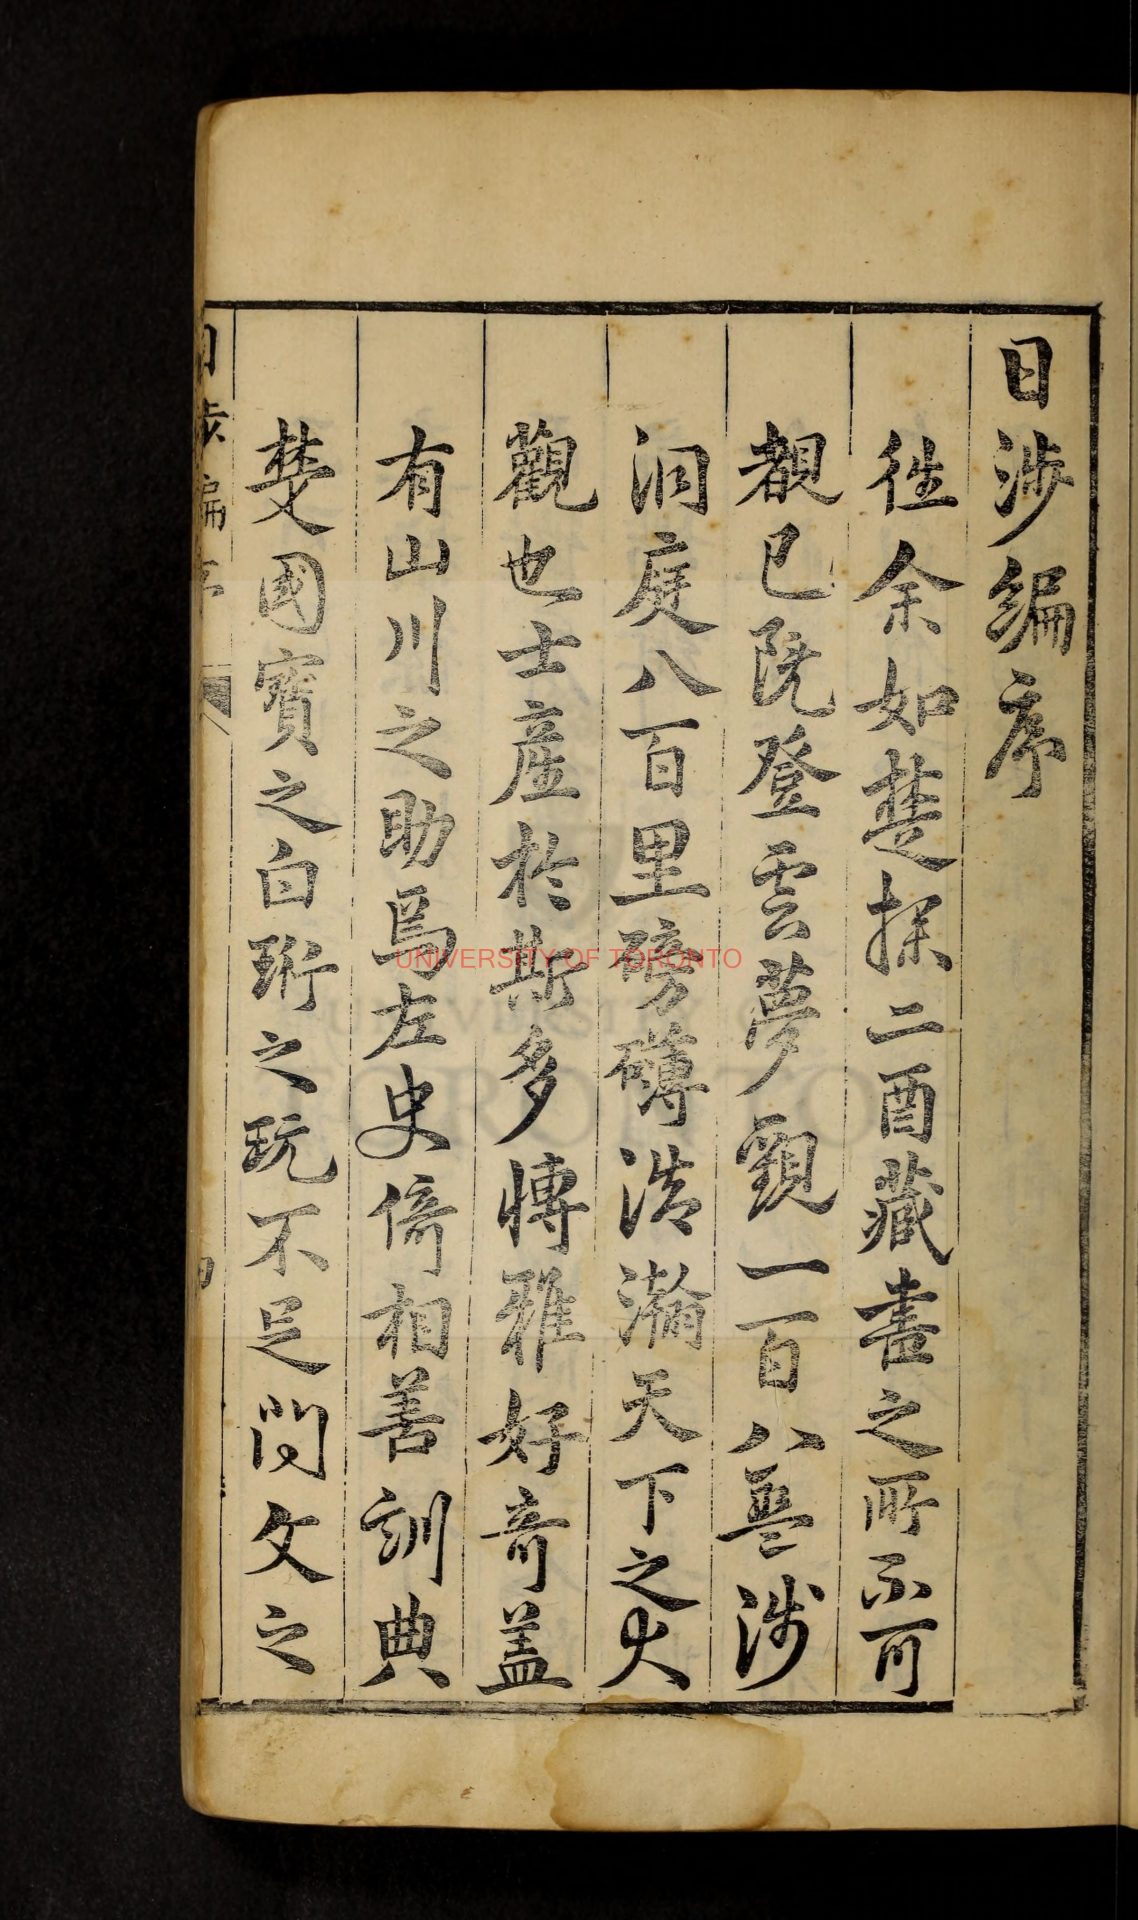 日涉編序
徃余如楚探二酉藏書之所不可
覩已既登雲夢觀一百八盤涉
洞庭八百里磅礴浩瀚天下之大
觀也士產於斯多博雅好奇盖
有山川之助焉左史倚相善訓典
楚國寳之白珩之玩不足問文之
日涉編序
UNIVERSITY OF TORONTO